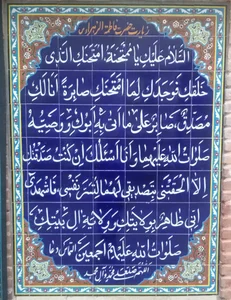 زیارت حضرت فاطمة الزهراء
السَّلامُ عَلَیْكِ یا مُمْتَحَنَةُ امْتَحَنَكِ الَّذی
خَلَقَكِ فَوَجَدَكِ لِمَا امْتَحَنَكِ صابِرَةً أَنَا لَكِ
مُصَدِّقٌ صابِرٌ عَلی ما أَتی بِهِ أَبُوكِ وَ وَصِیُّهُ
صَلَواتُ اللهِ عَلَیْهِما وَ أَنَا أَسْئَلُكِ إِنْ كُنْتُ صَدَّقْتُكِ
إِلّا أَلْحَقْتِنی بِتَصْدیقی لَهُما لِتُسَرَّ نَفْسی فَاشْهَدی
أَنّی ظاهِرٌ بِوَلایَتِكِ وَ وَلایَةِ آلِ بَیْتِكِ
صَلَواتُ اللهِ عَلَیْهِمْ أَجْمَعینَ